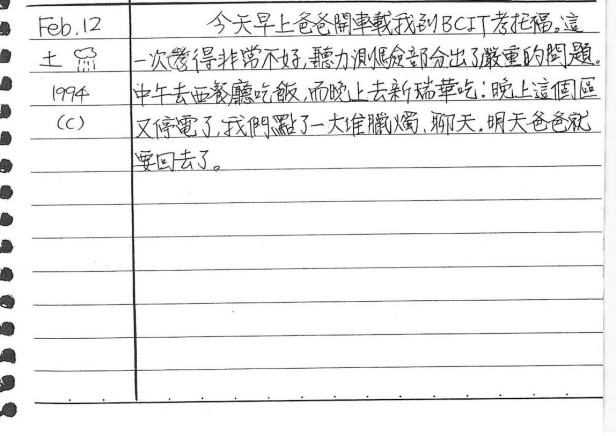 Feb.12 今天早上爸爸開車載我到BCIT考托福。這
土 一次考得非常不好,聽力測驗部分出了嚴重的問題。
1994 中午去西餐廳吃飯,而晚上去新瑞華吃;晚上這個區
(C) 又停電了,我們點了一大堆臘燭、聊天。明天爸爸就
要回去了。